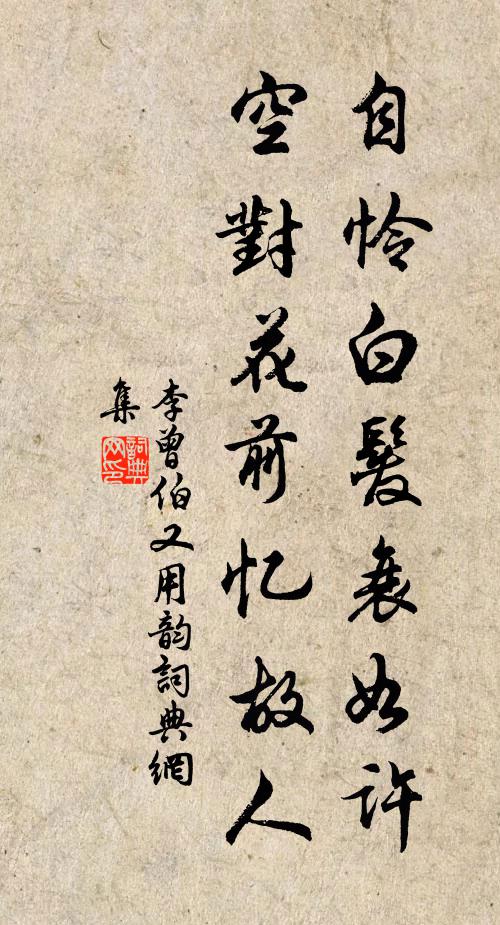 自怜白髮衰如许
空對花前忆故人
李曾伯又用韵詞典網
集
詞典
网印